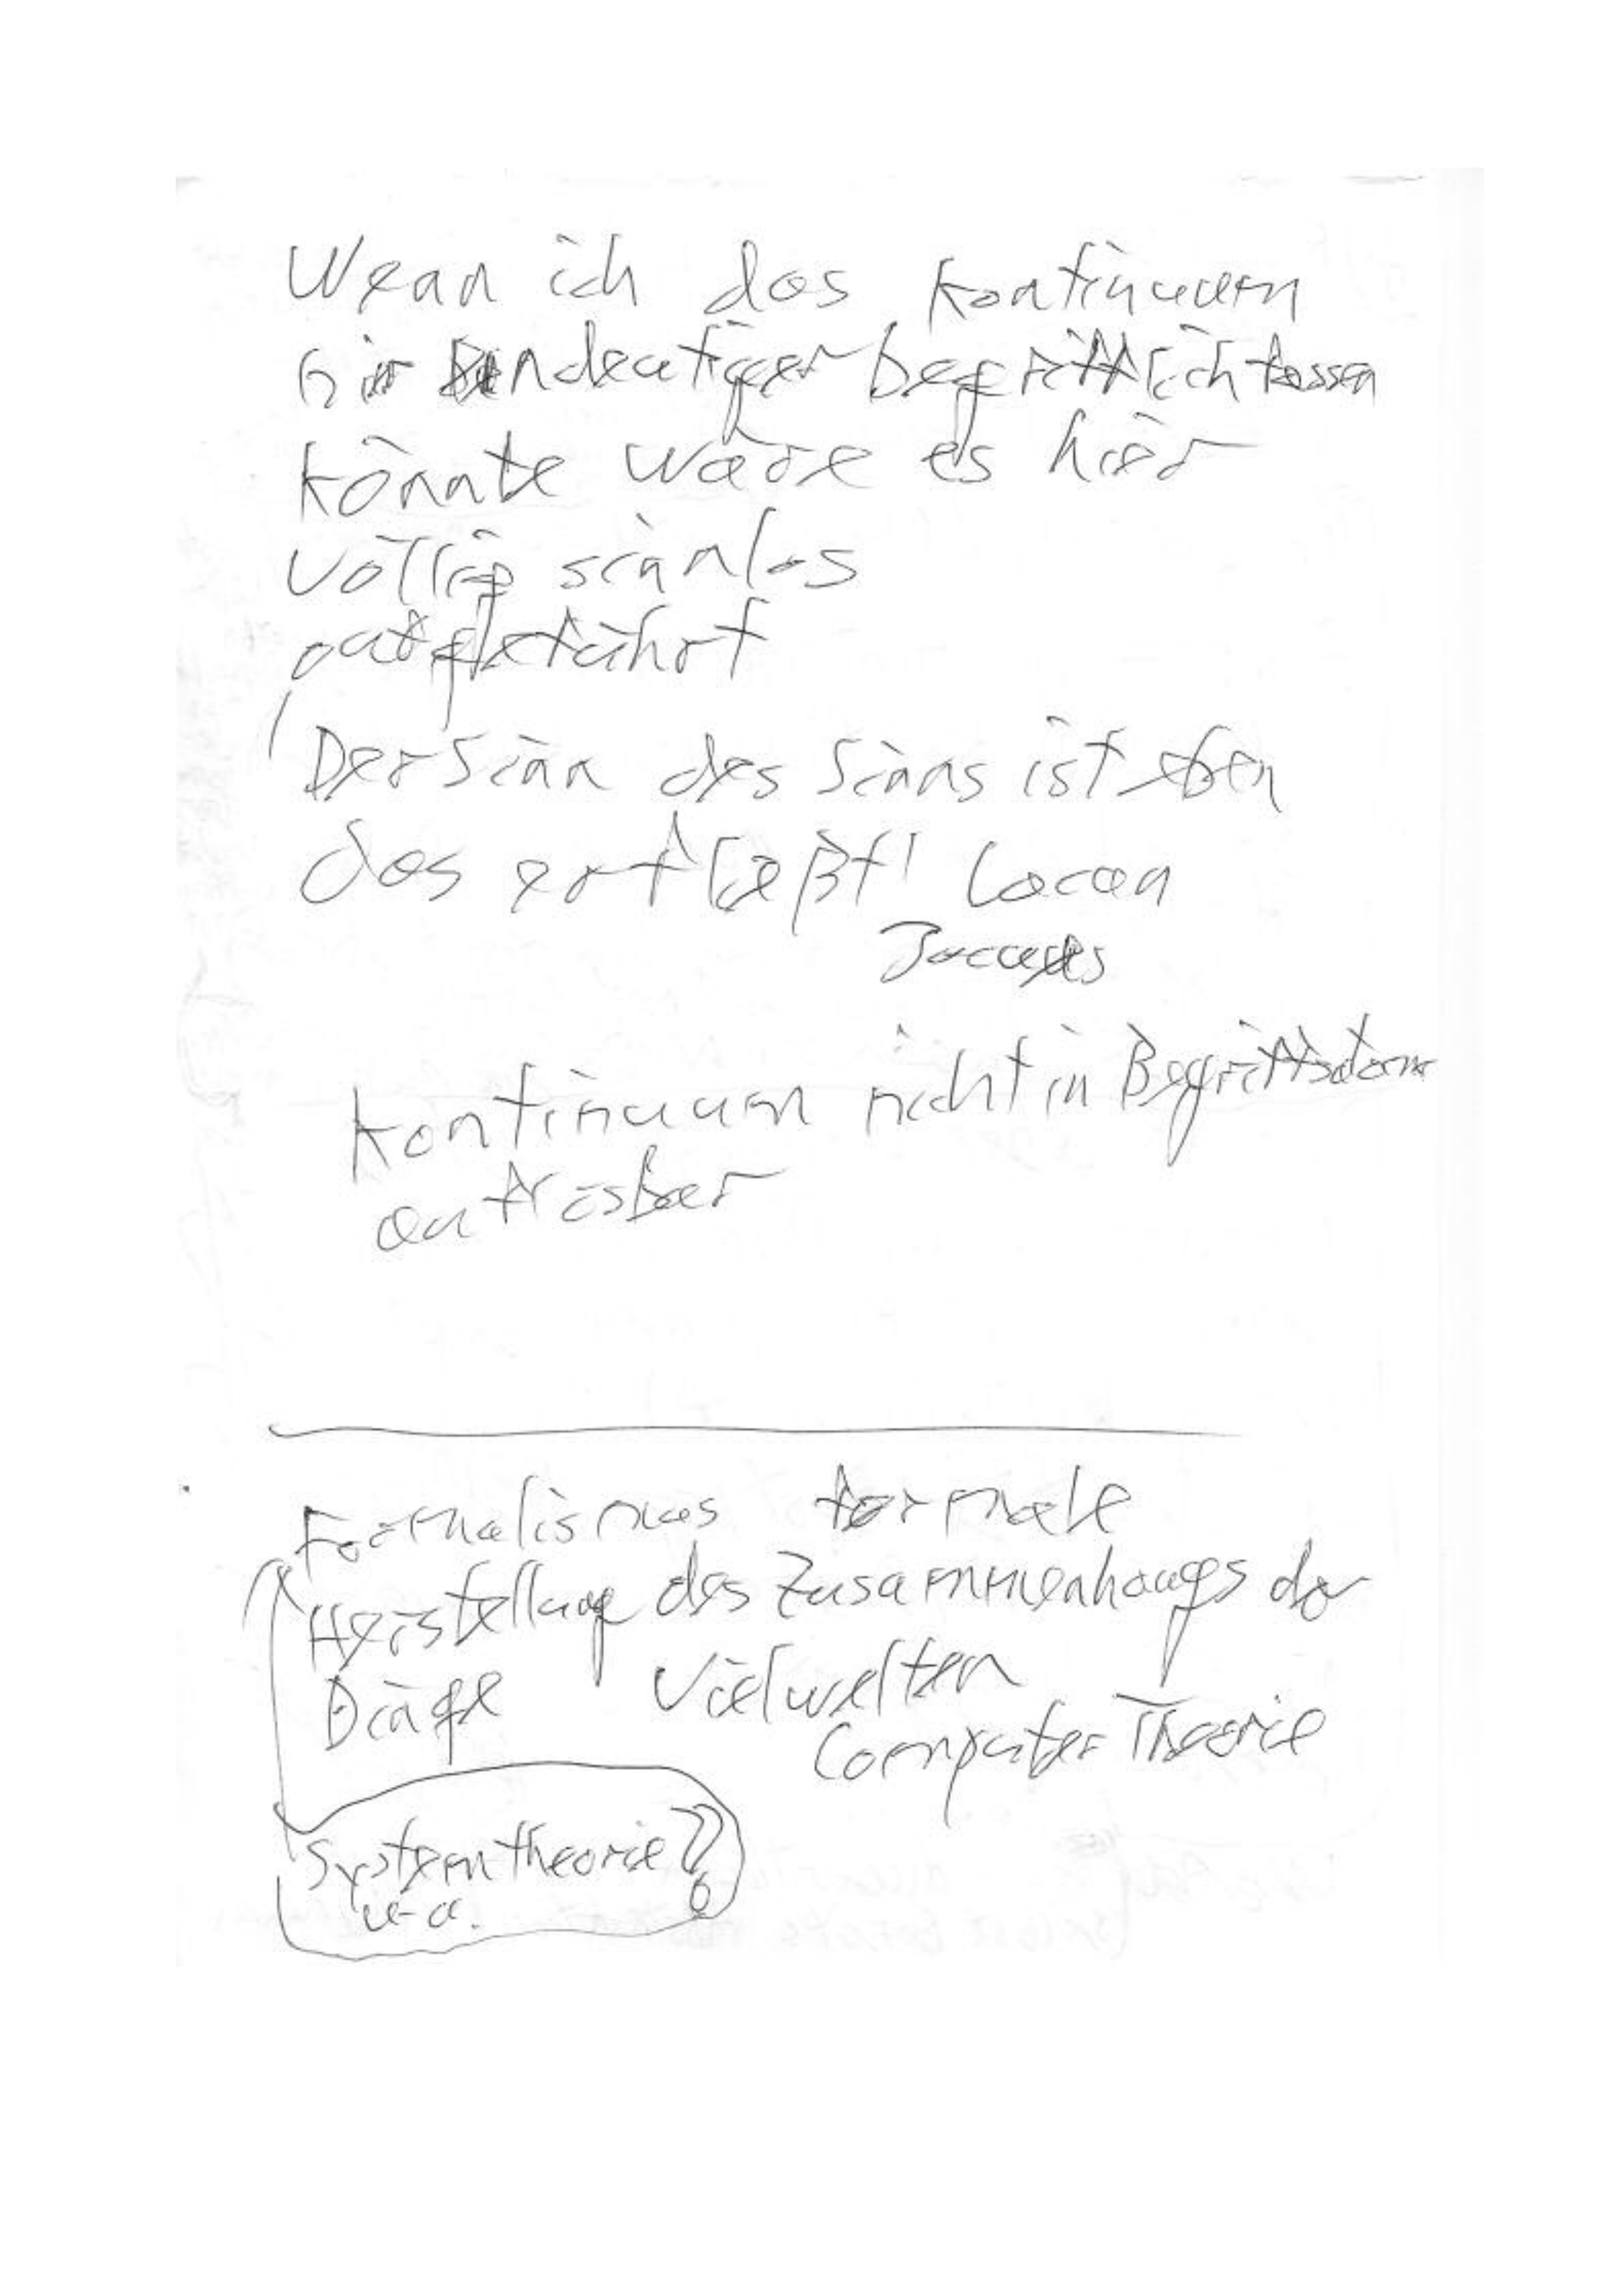 Wenn ich das Kontinuum
hier eindeutiger begrifflich fassen
könnte wäre es hier
völlig sinnlos
aufgeführt
Der Sinn des Sinns ist eben
das er fließt! Lacan
Jacques
Kontinuum nicht in Begriffsform
auflösbar
Formalismus formale
Herstellung des Zusammenhangs der
Dinge Vielwelten
Computer Theorie
Systemtheorie ?
u. a.